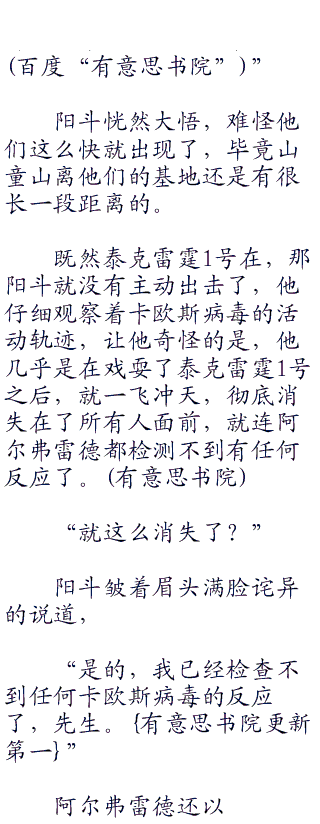 (百度“有意思书院”)”
阳斗恍然大悟，难怪他
们这么快就出现了，毕竟山
童山离他们的基地还是有很
长一段距离的。
既然泰克雷霆1号在，那
阳斗就没有主动出击了，他
仔细观察着卡欧斯病毒的活
动轨迹，让他奇怪的是，他
几乎是在戏耍了泰克雷霆1号
之后，就一飞冲天，彻底消
失在了所有人面前，就连阿
尔弗雷德都检测不到有任何
反应了。(有意思书院)
“就这么消失了？”
阳斗皱着眉头满脸诧异
的说道，
“是的，我已经检查不
到任何卡欧斯病毒的反应
了，先生。{有意思书院更新
第一}”
阿尔弗雷德还以